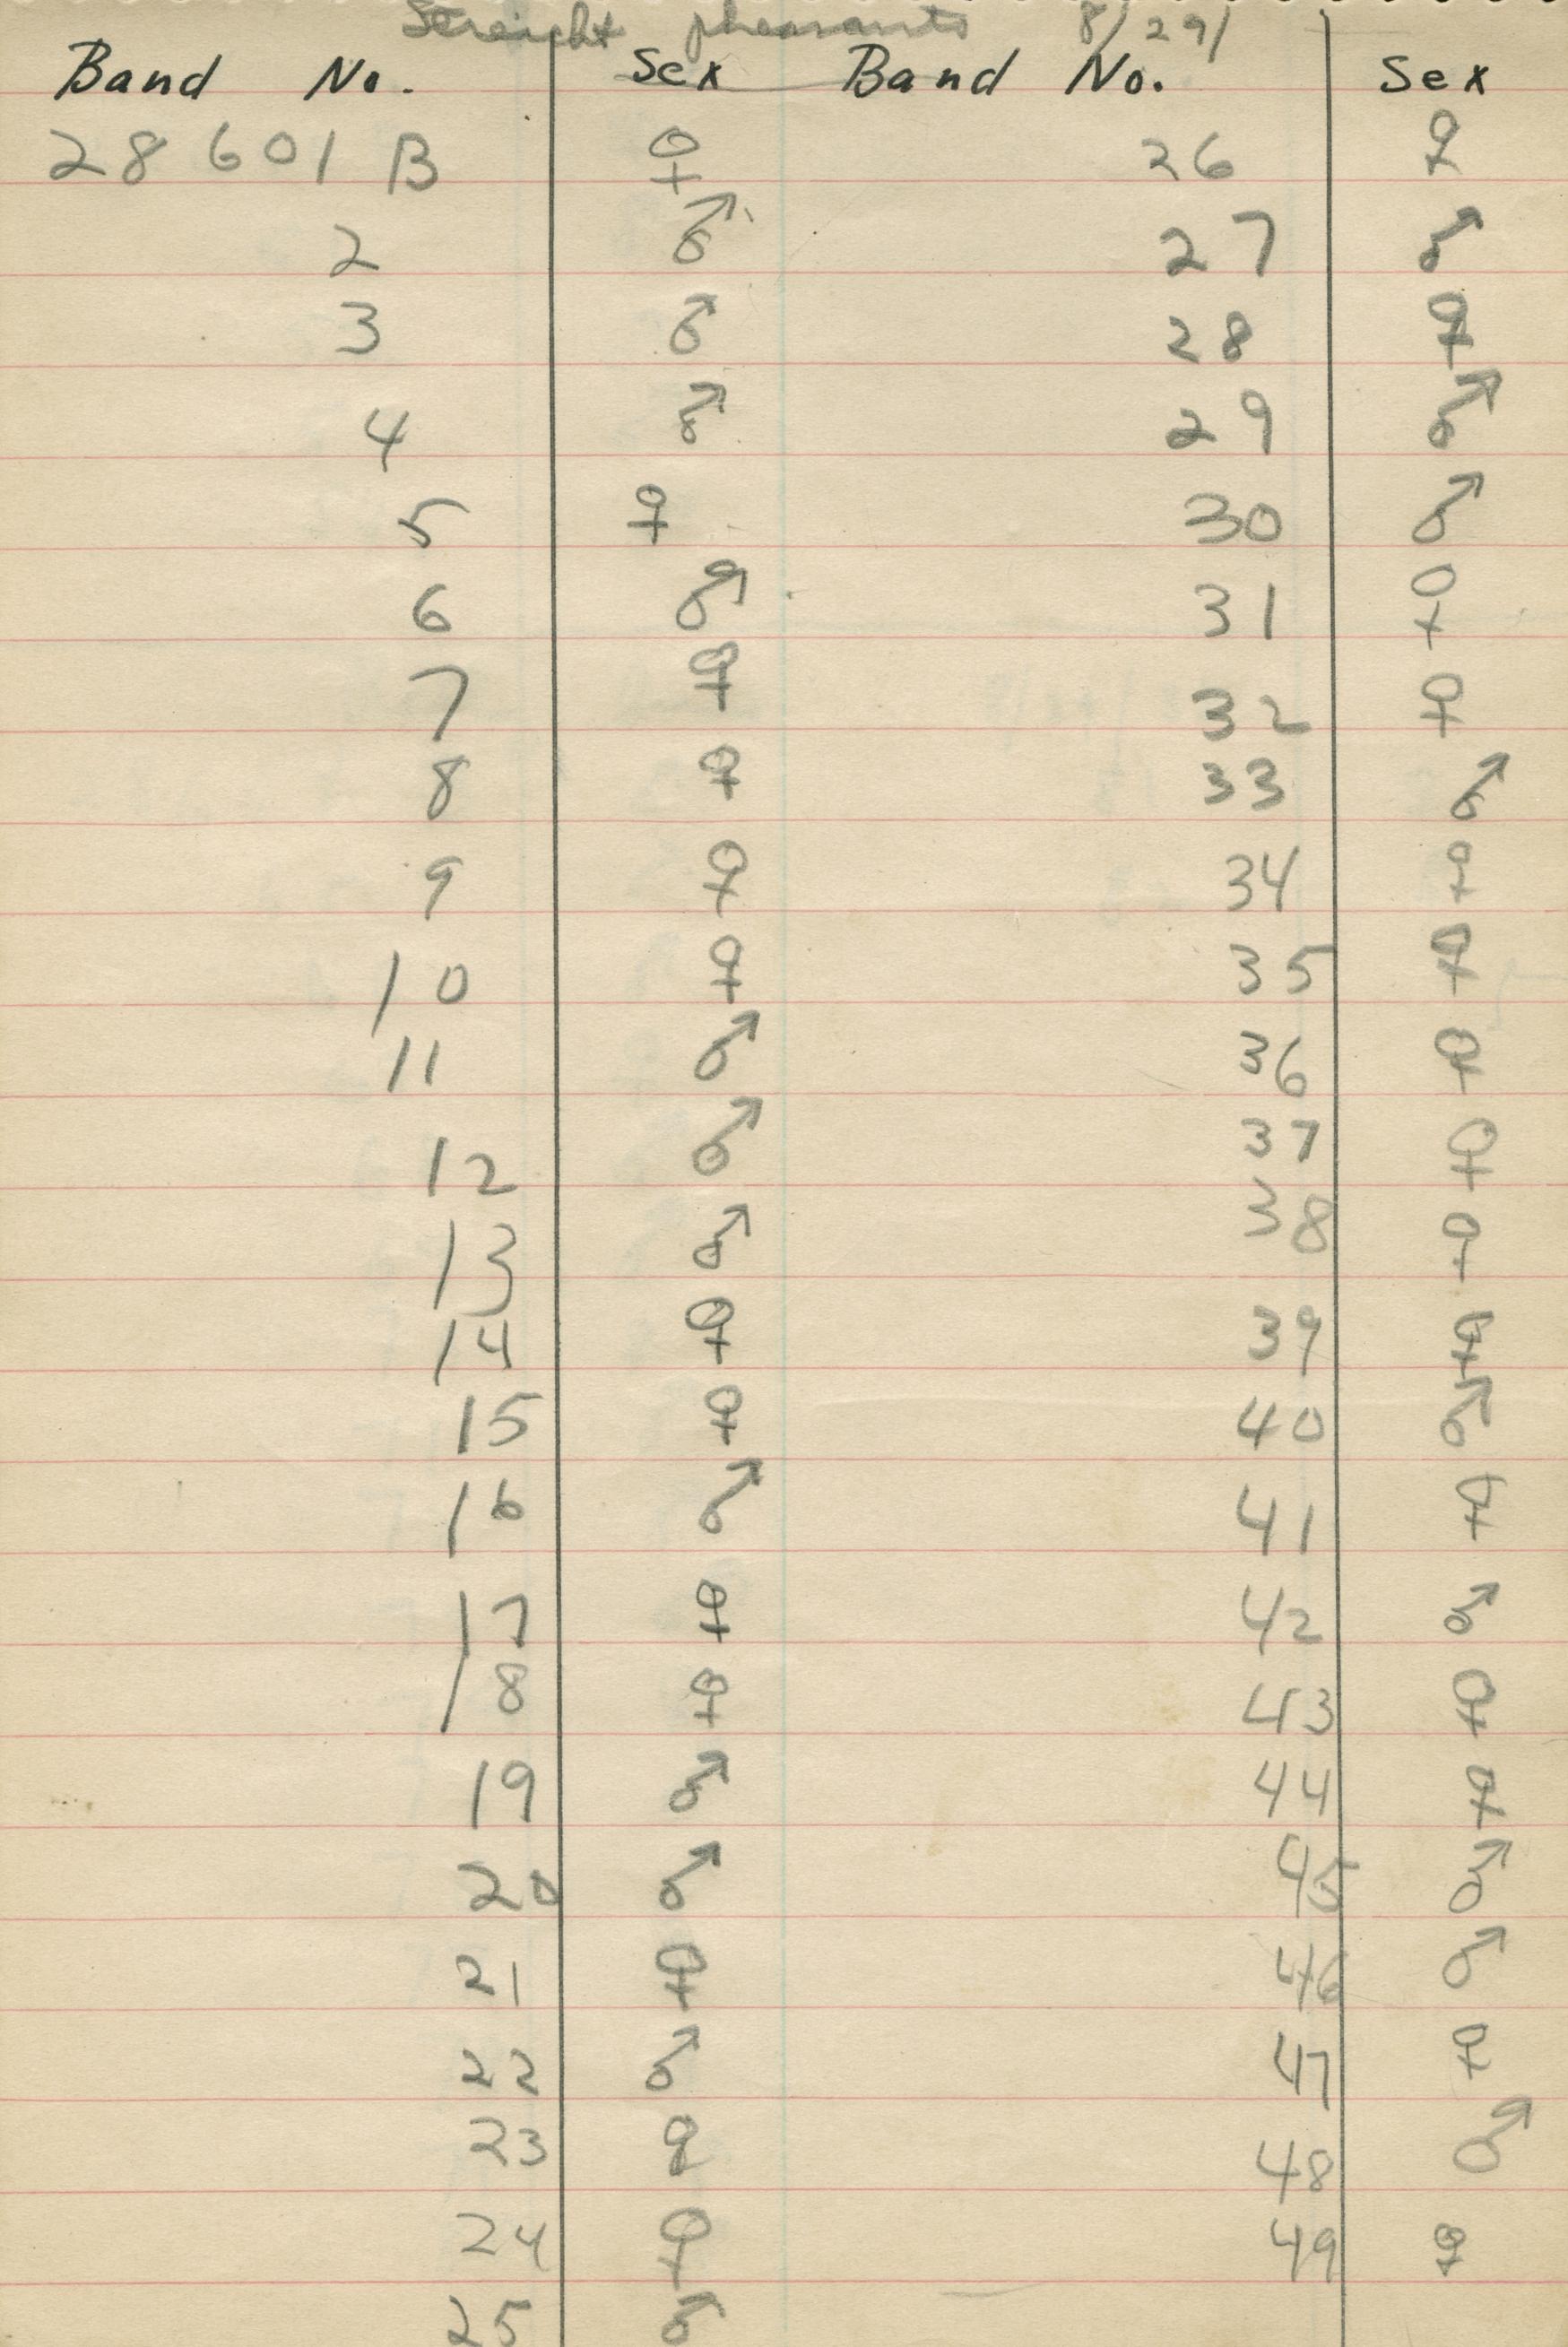 Streicht pheasants 8/29/
Band No. Sex Band No. Sex
28 601 B ♀ 26 ♀
2 ♂ 27 ♂
3 ♂ 28 ♀
4 ♂ 29 ♂
5 ♀ 30 ♂
6 ♂ 31 ♀
7 ♀ 32 ♀
8 ♀ 33 ♂
9 ♀ 34 ♀
10 ♀ 35 ♀
11 ♂ 36 ♀
12 ♂ 37 ♀
13 ♂ 38 ♀
14 ♀ 39 ♀
15 ♀ 40 ♂
16 ♂ 41 ♀
17 ♀ 42 ♂
18 ♀ 43 ♀
19 ♂ 44 ♀
20 ♂ 45 ♂
21 ♀ 46 ♂
22 ♂ 47 ♀
23 ♀ 48 ♂
24 ♀ 49 ♀
25 ♂